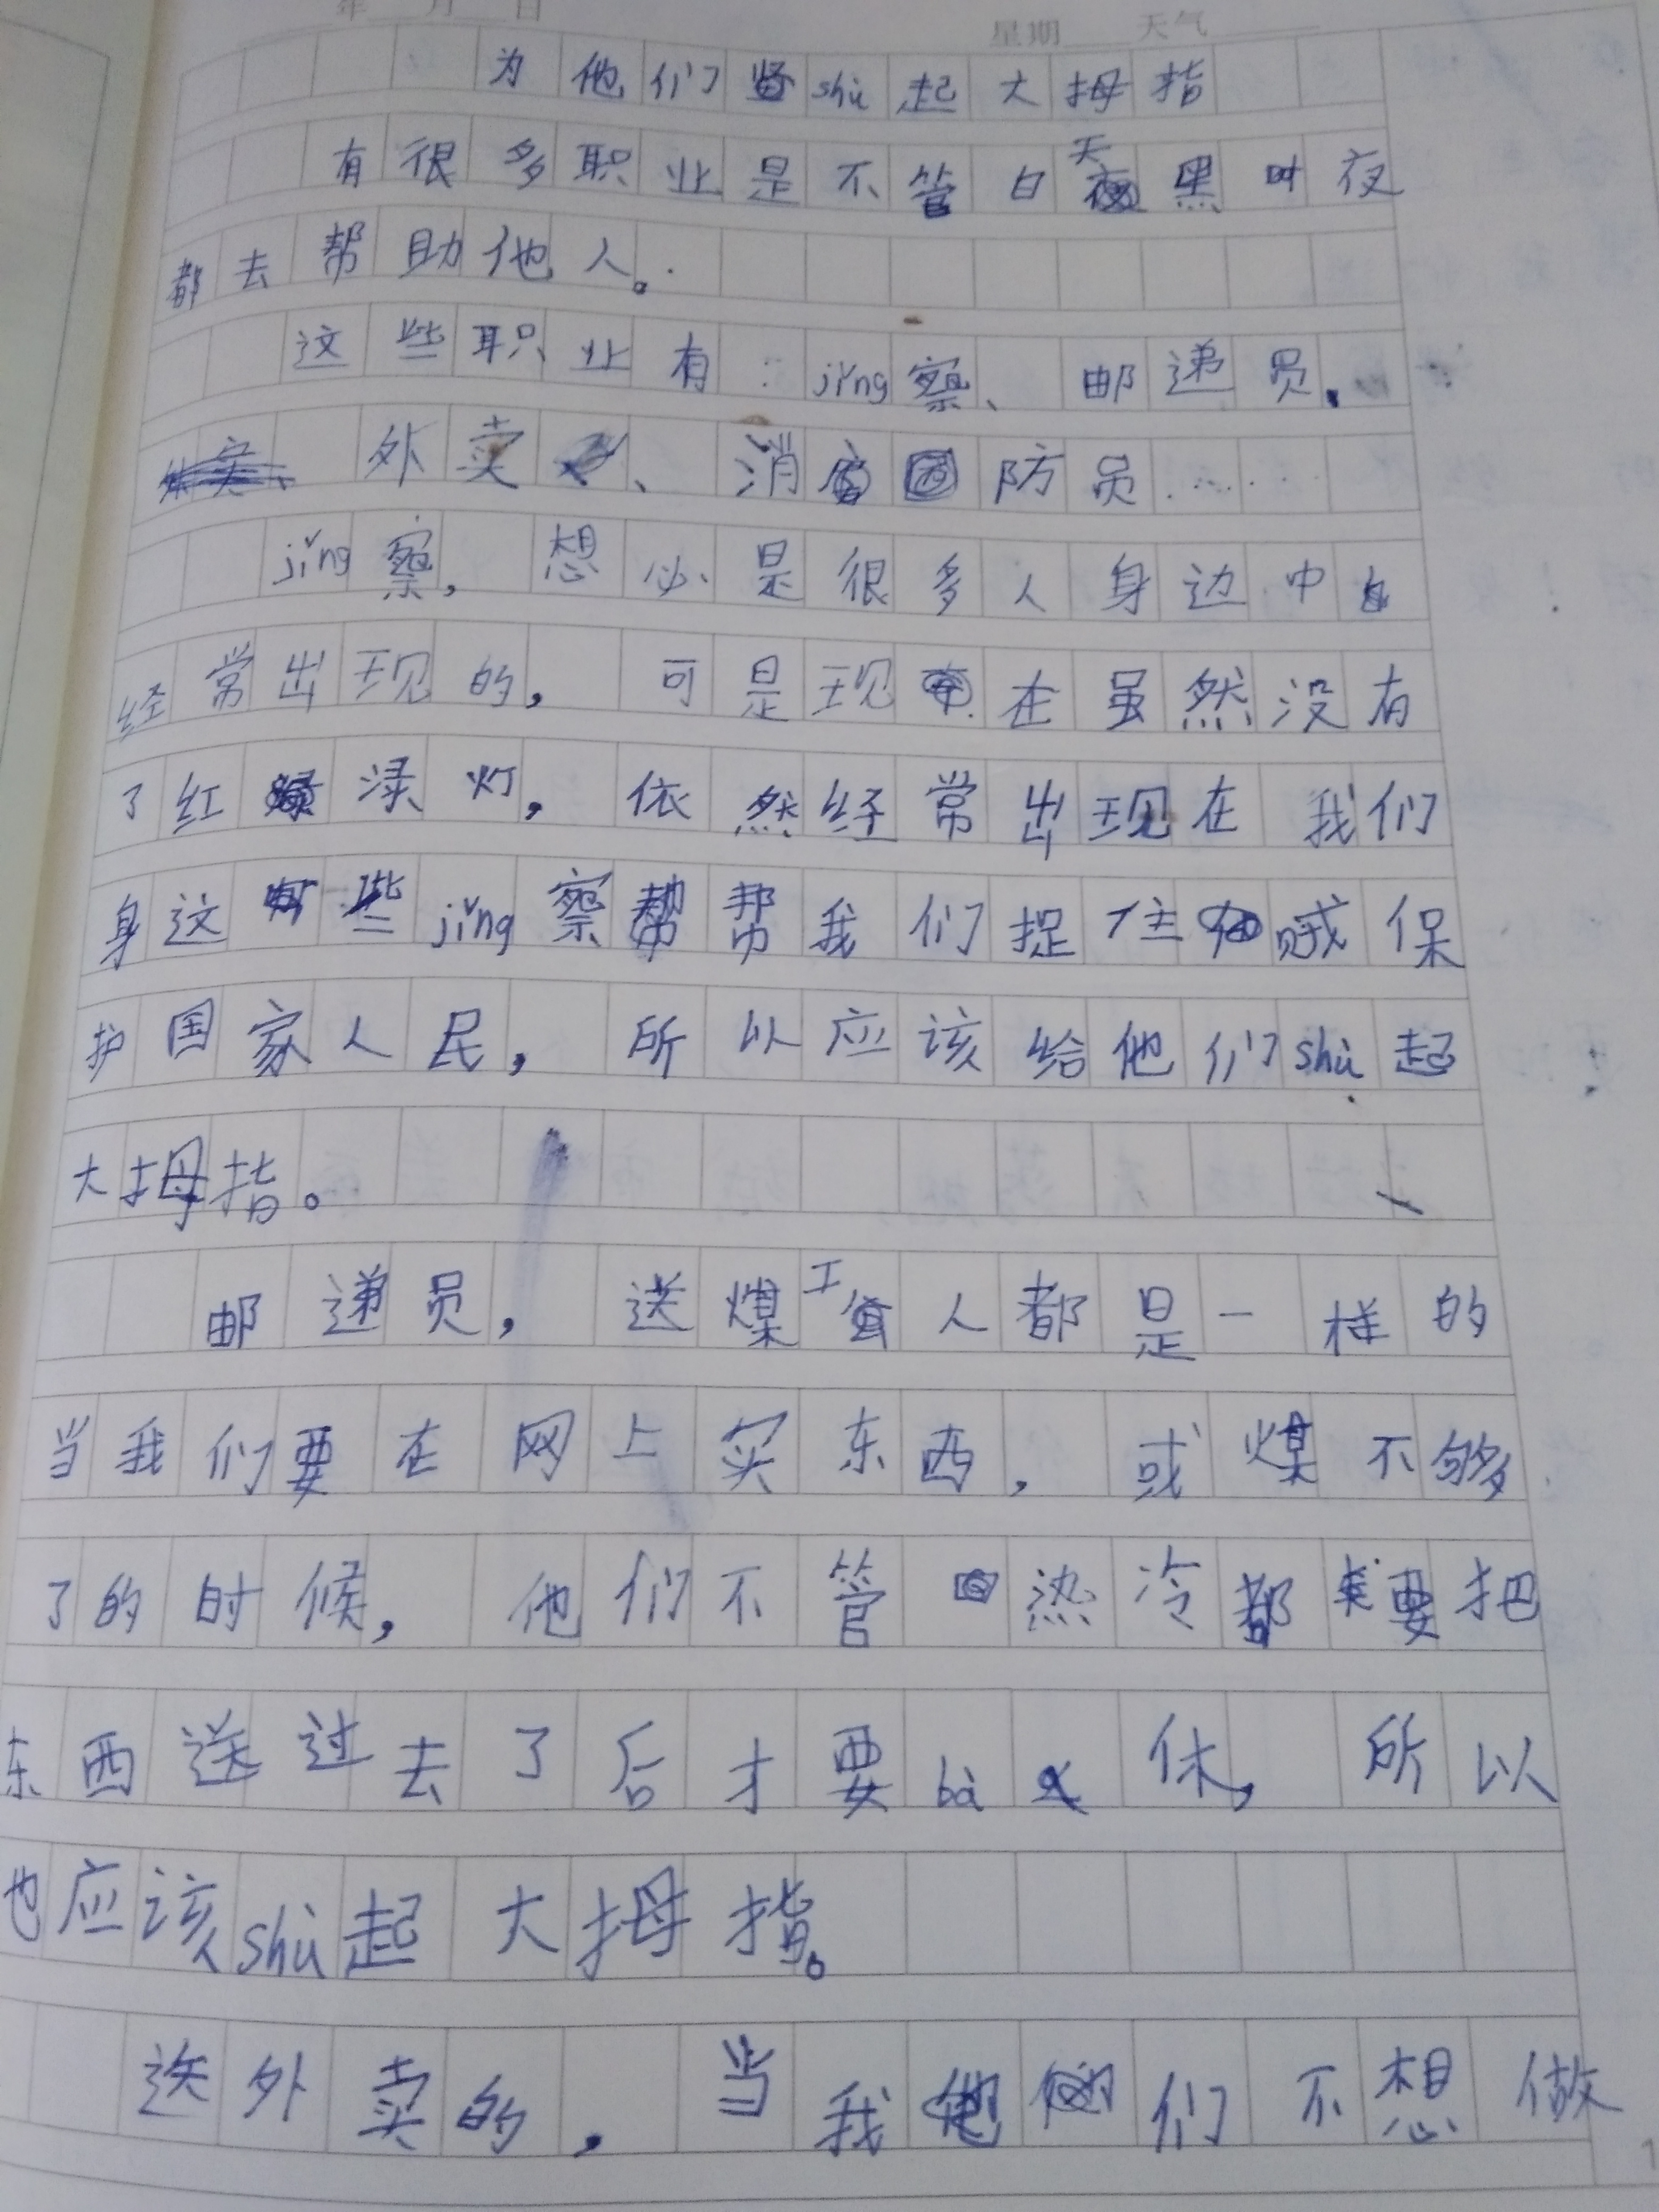 年 月 日 星期 天气
为他们shù起大拇指
有很多职业是不管白天黑夜
都去帮助他人。
这些职业有：jǐng察、邮递员、
外卖、消防员……
jǐng察，想必是很多人身边中
经常出现的，可是现在虽然没有
了红渌灯，依然经常出现在我们
身这些jǐng察帮我们捉住贼保
护国家人民，所以应该给他们shù起
大拇指。
邮递员，送煤工人都是一样的
当我们要在网上买东西，或煤不够
了的时候，他们不管热冷都要把
东西送过去了后才要bà休，所以
也应该shù起大拇指。
送外卖的，当我们不想做